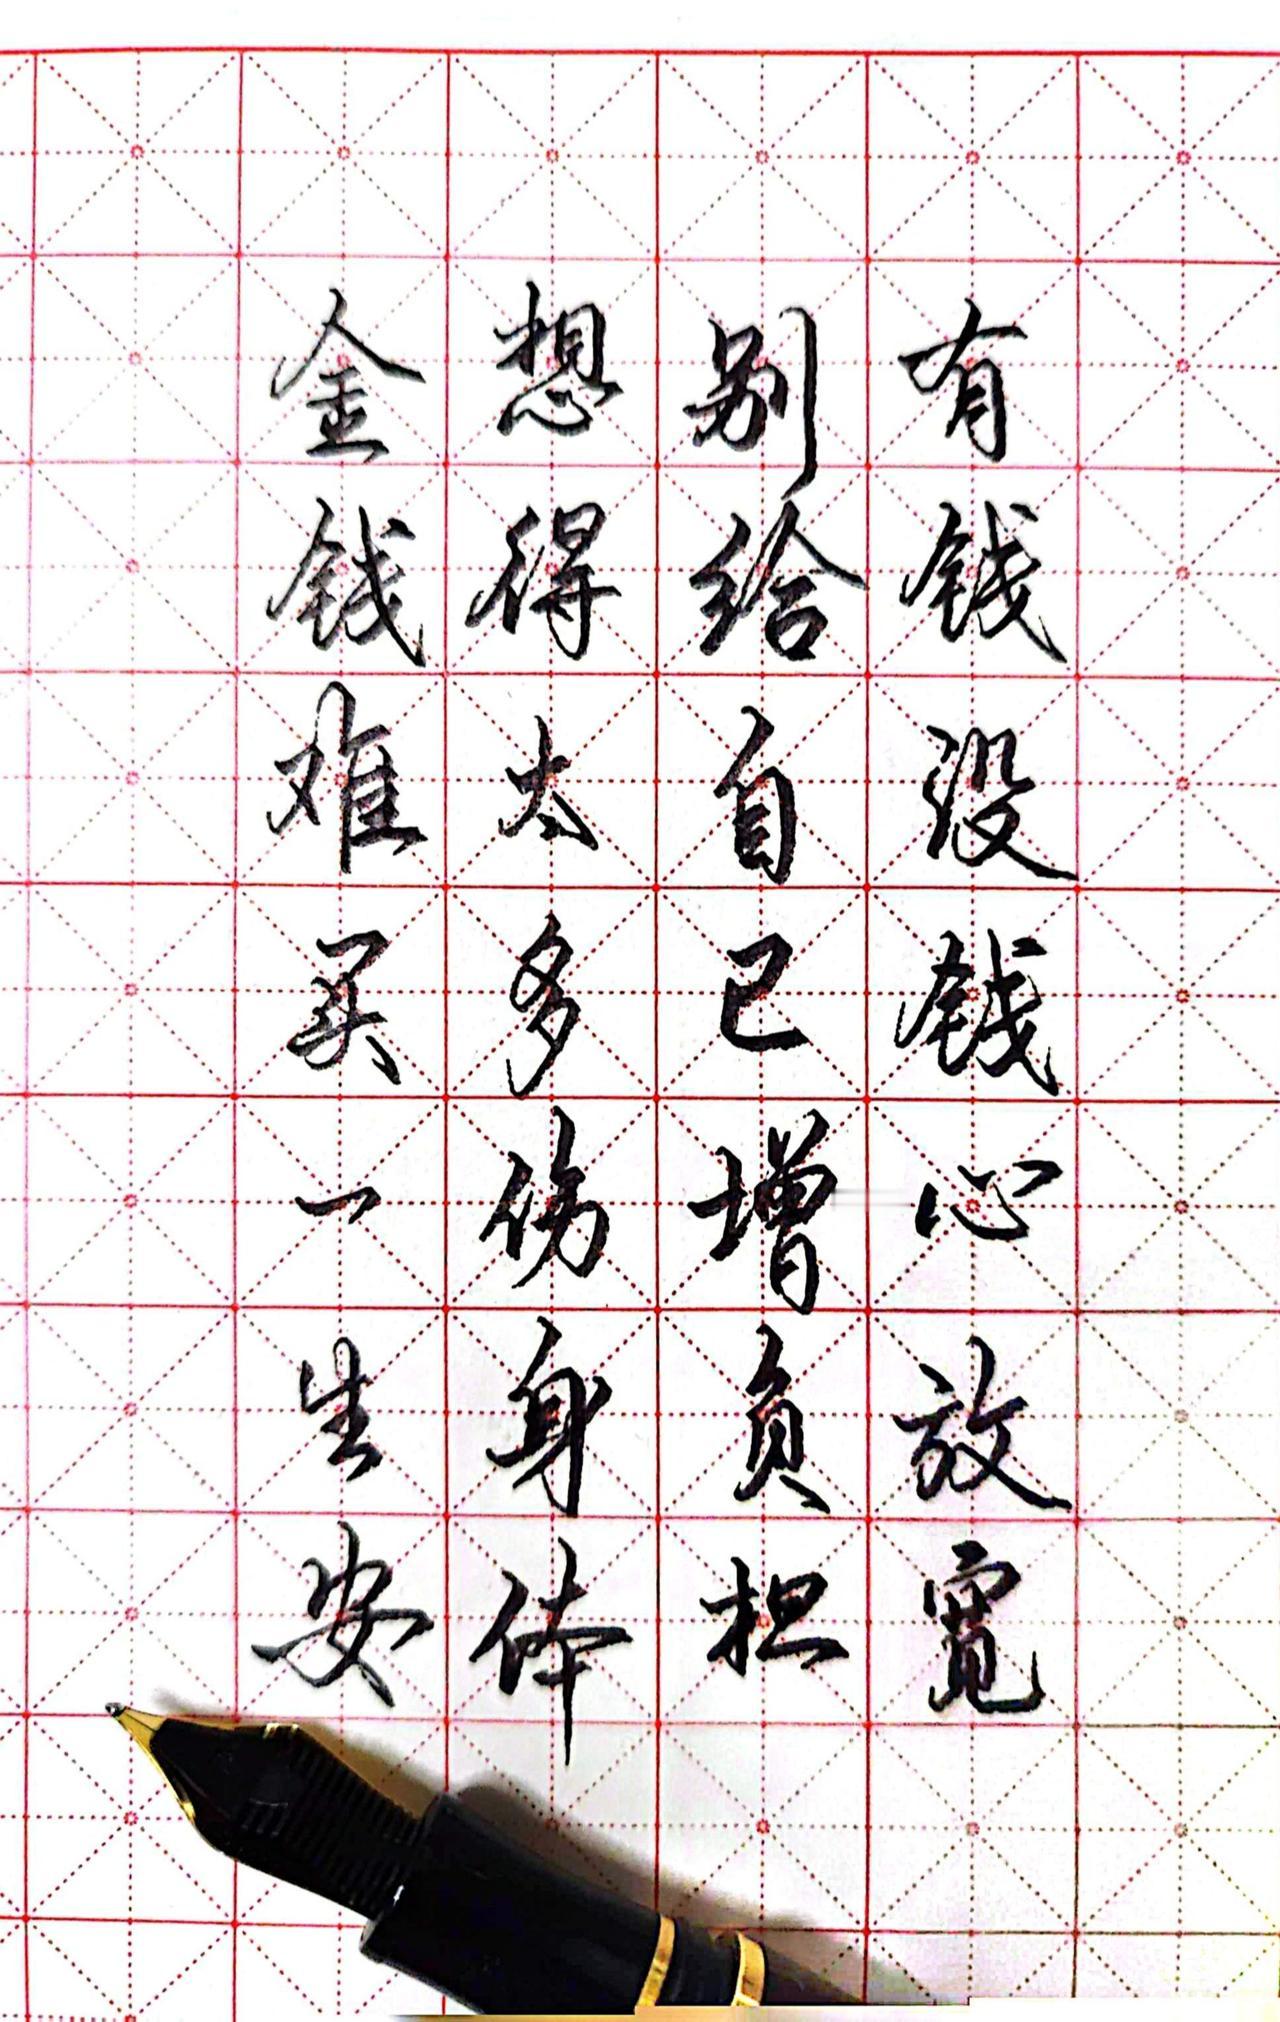 有钱没钱心放宽
别给自己增负担
想得太多伤身体
金钱难买一生安